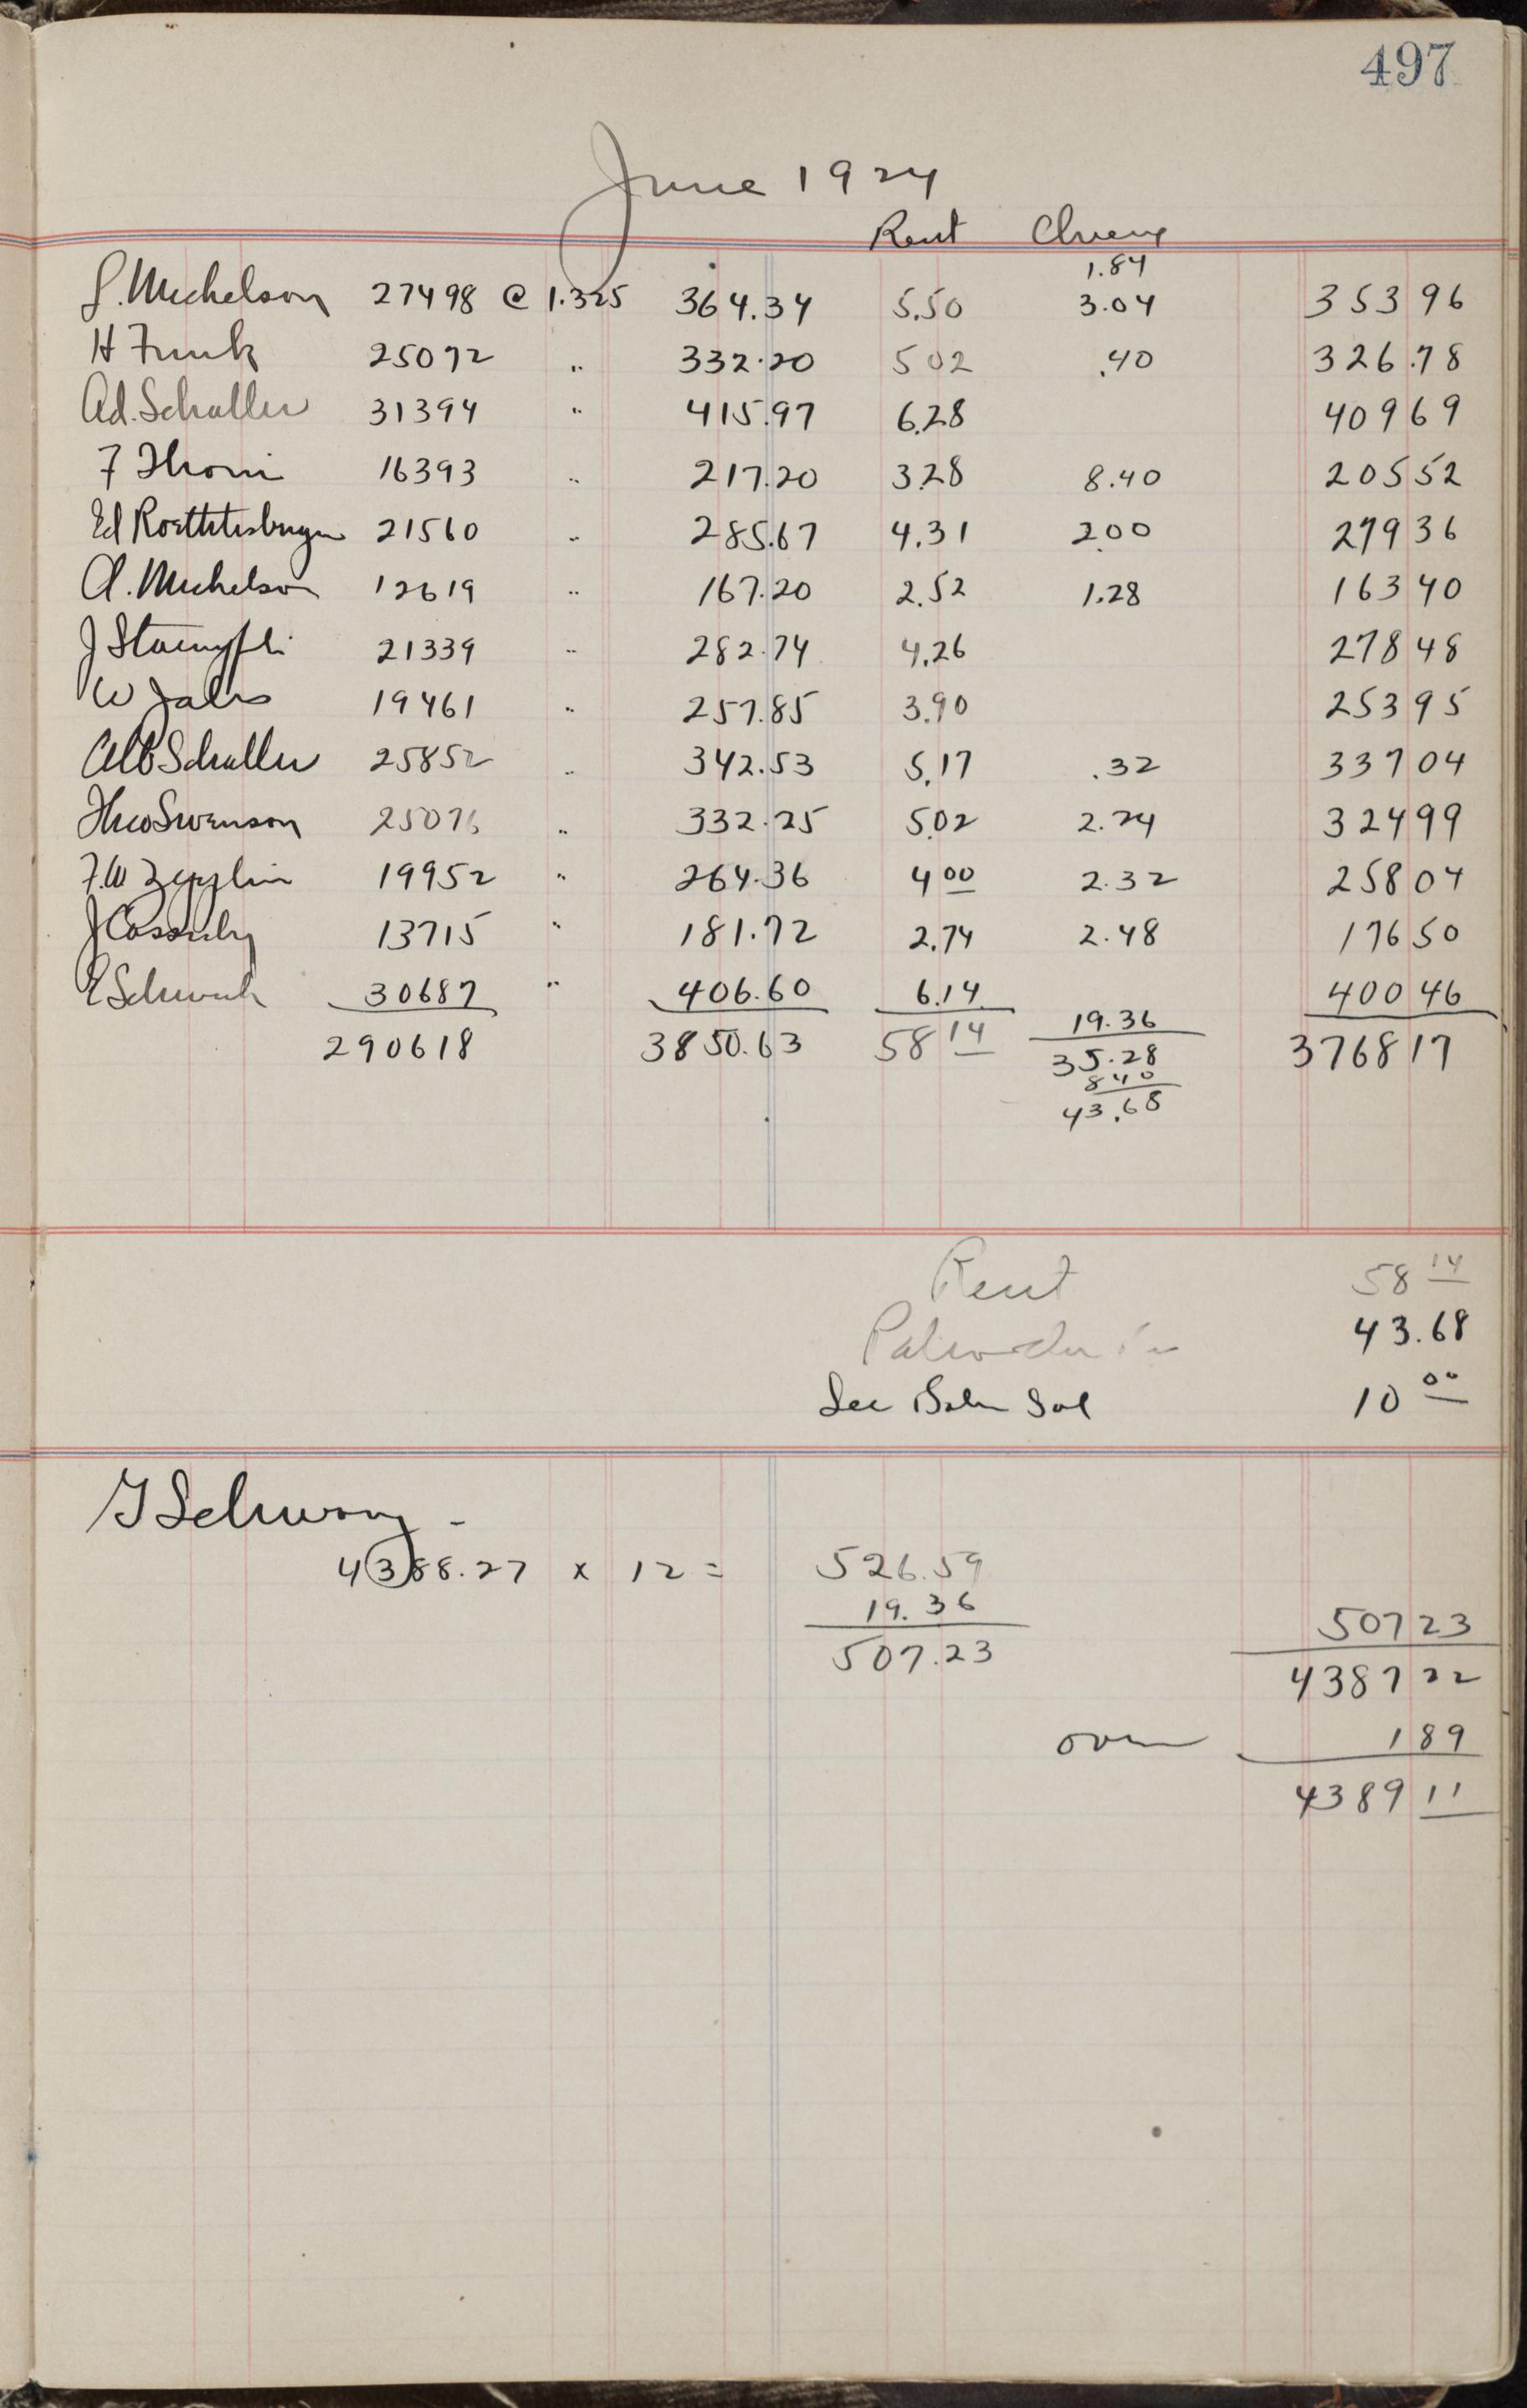 497
June 1924
Rent Cheese
1.84
S. Michelson 27498 @ 1.325 364.34 5.50 3.04 353 96
H Funk 25072 " 332.20 5 02 .40 326.78
Ad. Schaller 31394 " 415.97 6.28 409 69
F Thoni 16393 " 217.20 3.28 8.40 205 52
Ed 21560 " 285.67 4.31 2.00 279 36
A. Michelson 12619 " 167.20 2.52 1.28 163 40
J Staempfli 21339 " 282.74 4.26 278 48
W Jahs 19461 " 257.85 3.90 253 95
Alb Schaller 25852 " 342.53 5.17 .32 337 04
Theo Swenson 25076 " 332.25 5.02 2.24 324 99
F.W Zepplin 19952 " 264.36 4 00 2.32 258 04
J Cassidy 13715 " 181.72 2.74 2.48 176 50
E 30687 " 406.60 6.14 400 46
19.36
290618 3850.63 58 14 35.28 3768 17
8 40
43.68
Rent 58 14
43.68
10 00
4388.27 x 12 = 526.59
19.36 507 23
507.23
4387 22
over 1 89
4389 11